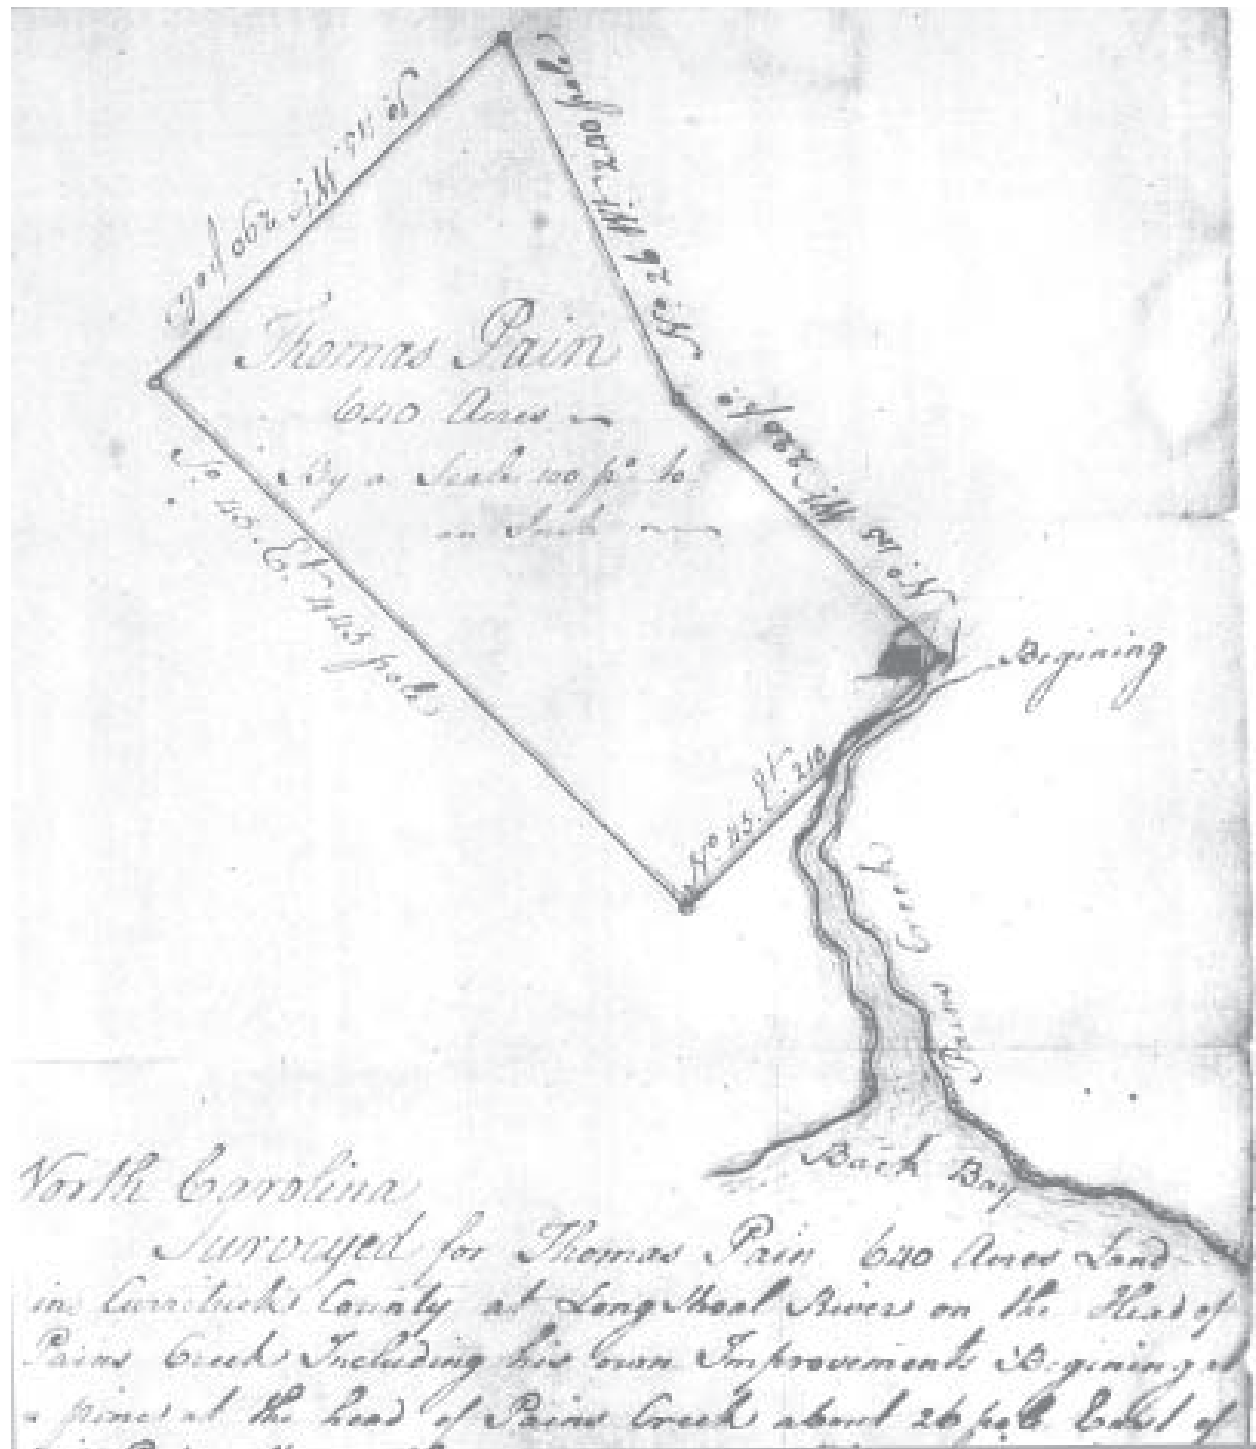 So. 45. Wt. 290 pole
No. 26 Wt. 200 pole
Thomas Pain
640 Acres
By a Scale 100 po. to
an Inch
No. 43 Wt. 220 po.
So. 45. Et. 443 pole
Begining
No. 45. Et. 210
Pains Creek
Back Bay
North Carolina
Surveyed for Thomas Pain 640 Acres Land
in Curritucks County at Long Shoal River on the Head of
Pains Creek Including his own Improvements Begining at
a pine at the head of Pains Creek about 26 pole East of